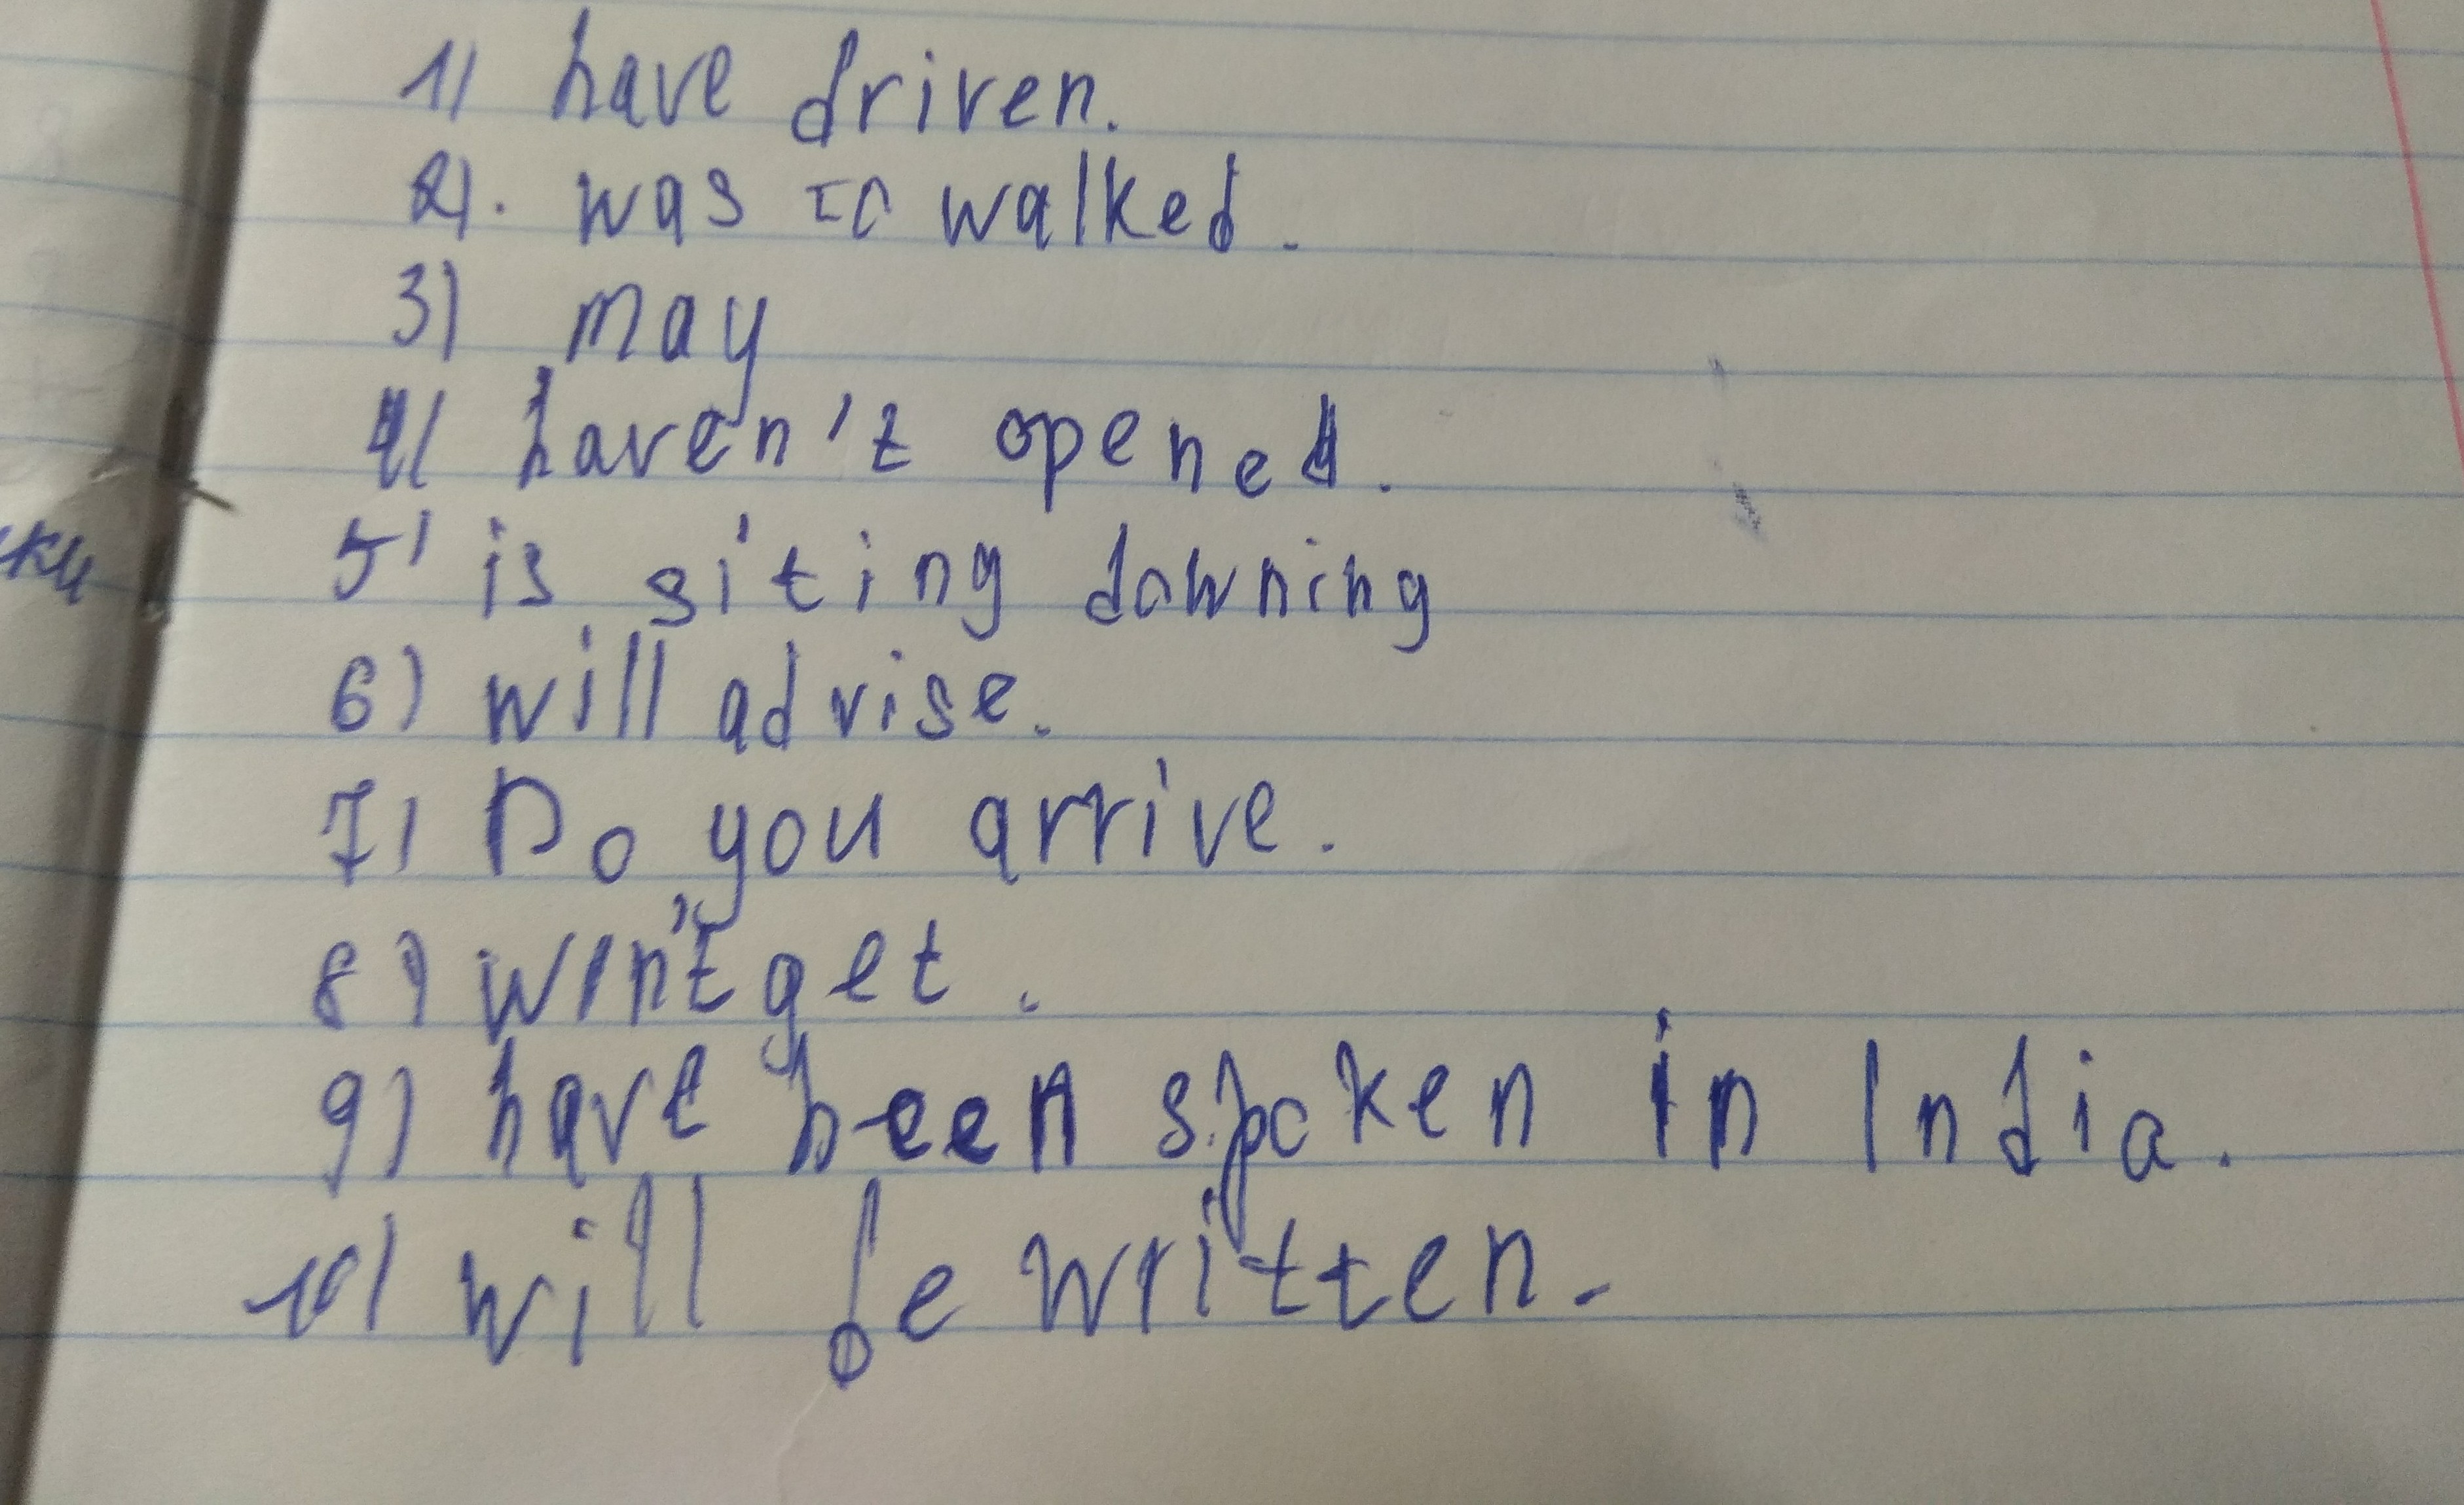 1) have driven.
2). was to walked.
3) may
4) haven't opened.
ки
5) is siting downing
6) will advise.
7) Do you arrive.
8) win't get.
9) have been spoken in India.
10) will be written.